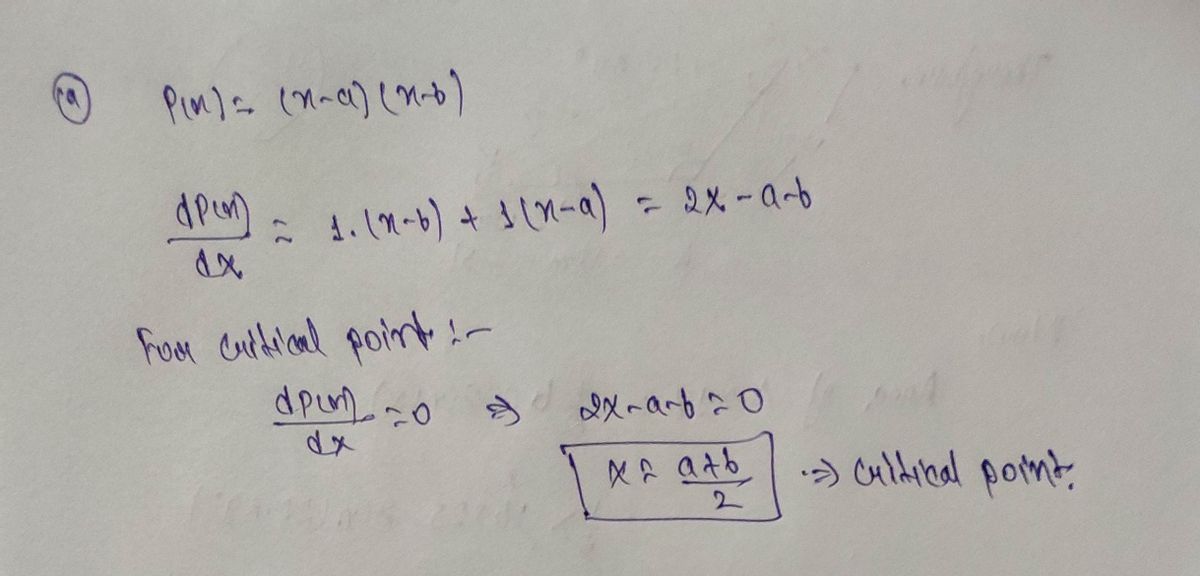 (a) P(x) = (x-a)(x-b)
dP(x)/dx = 1.(x-b) + 1(x-a) = 2x-a-b
For critical point :-
dP(x)/dx = 0 ⇒ 2x-a-b = 0
x = a+b/2 ⇒ critical point.